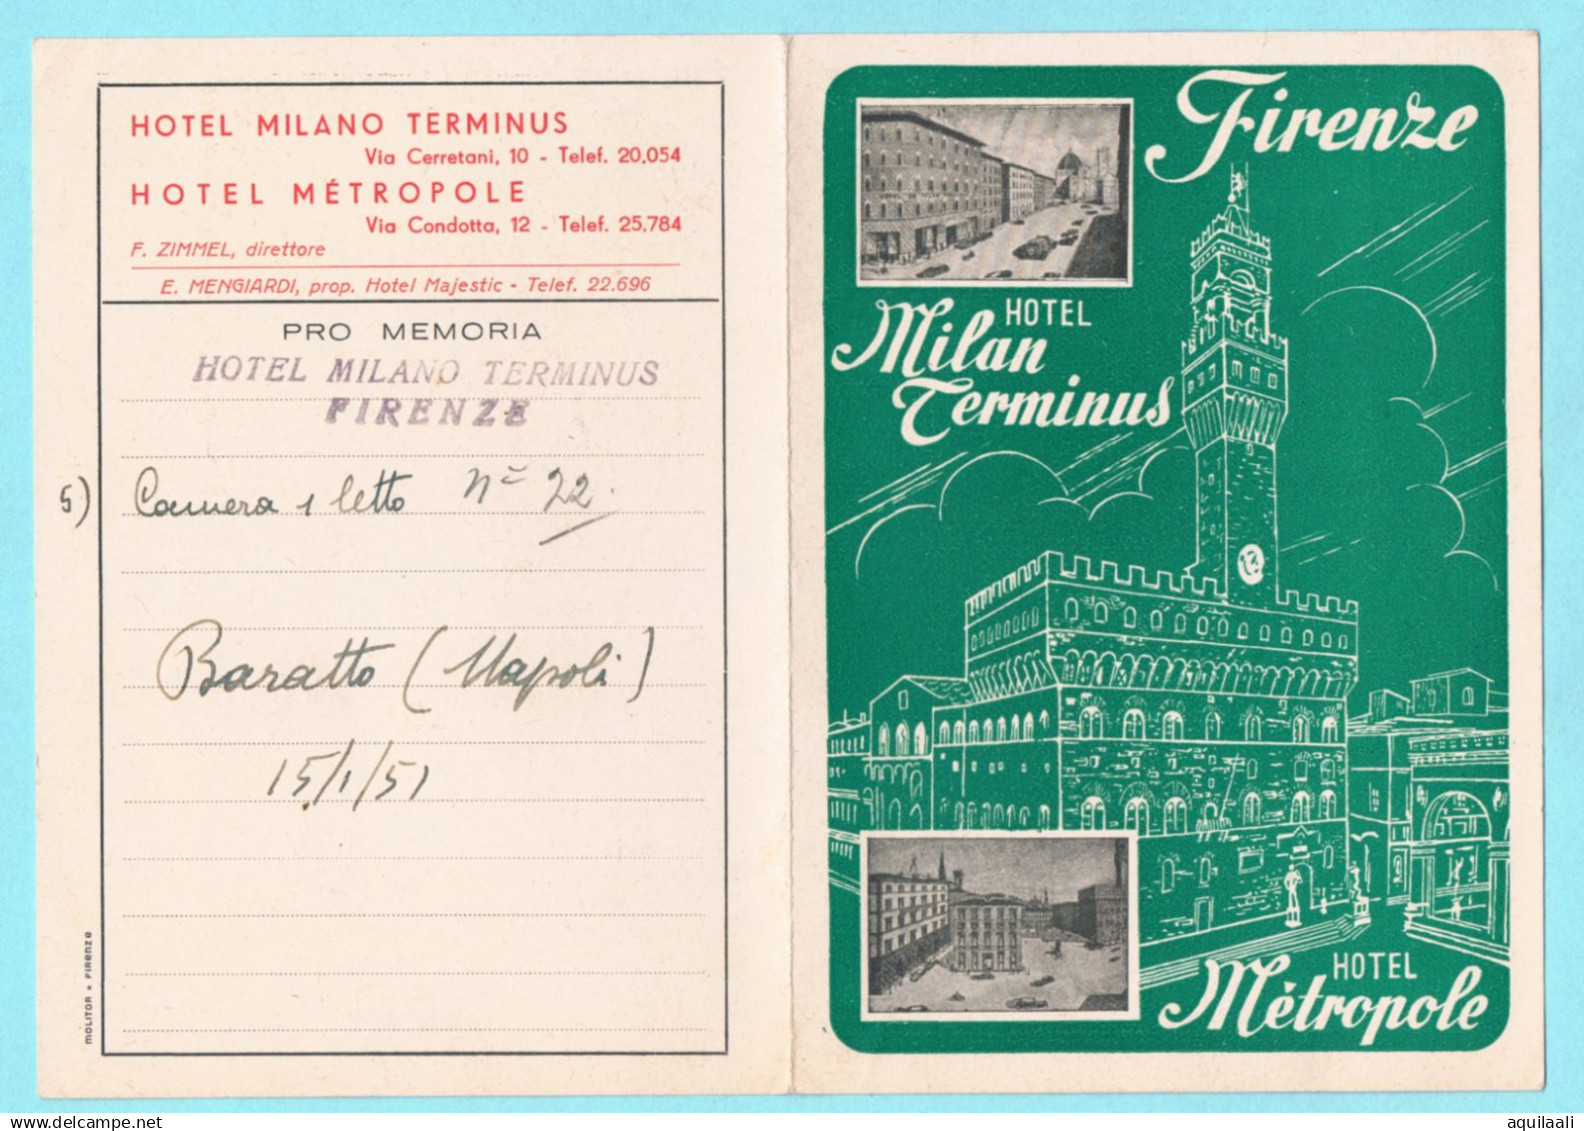 HOTEL MILANO TERMINUS
Via Cerretani, 10 - Telef. 20,054
HOTEL MÉTROPOLE
Via Condotta, 12 - Telef. 25.784
F. ZIMMEL, direttore
E. MENGIARDI, prop. Hotel Majestic - Telef. 22.696
PRO MEMORIA
HOTEL MILANO TERMINUS
FIRENZE
5) Camera 1 letto Nº 22.
Baratto (Napoli)
15/1/51
MOLITOR * FIRENZE
Firenze
HOTEL
Milan
Terminus
HOTEL
Métropole
aquilaali